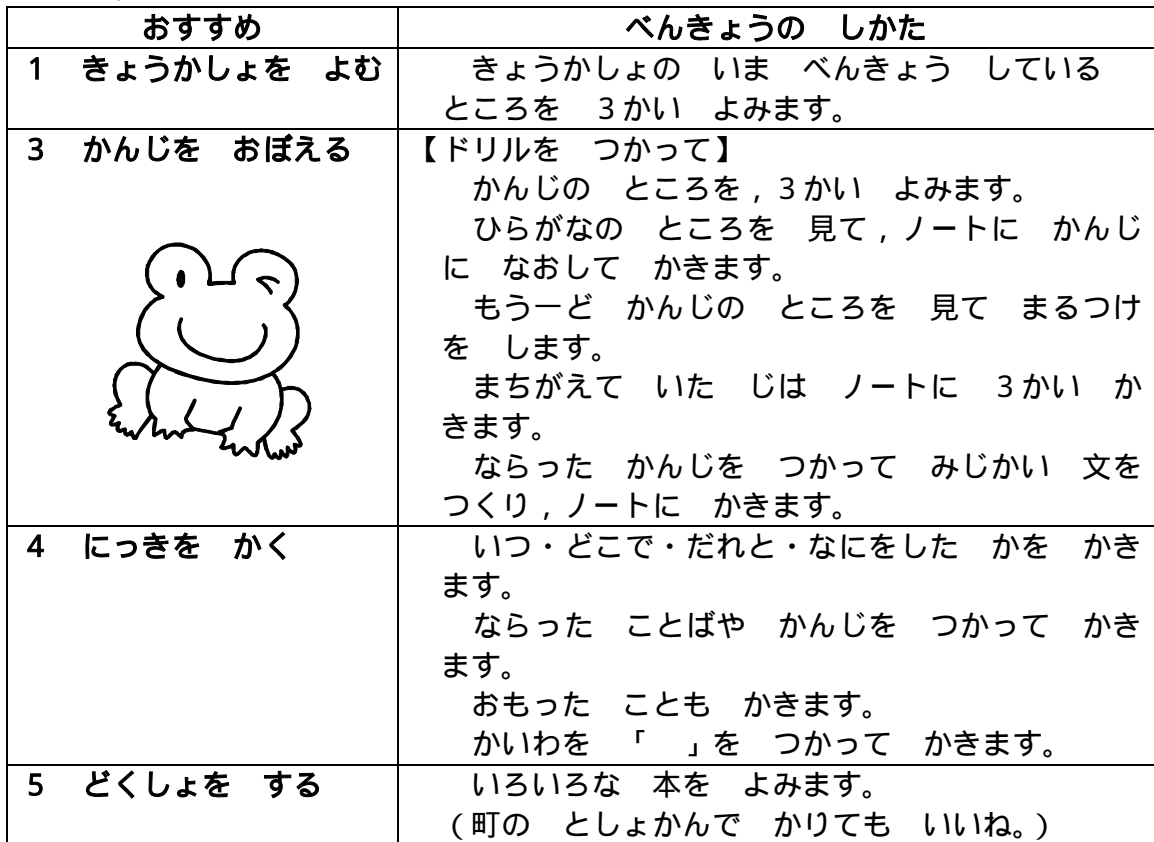 おすすめ　べんきょうの　しかた
1　きょうかしょを　よむ
きょうかしょの　いま　べんきょう　している
ところを　３かい　よみます。
3　かんじを　おぼえる
【ドリルを　つかって】
かんじの　ところを，３かい　よみます。
ひらがなの　ところを　見て，ノートに　かんじ
に　なおして　かきます。
もう一ど　かんじの　ところを　見て　まるつけ
を　します。
まちがえて　いた　じは　ノートに　３かい　か
きます。
ならった　かんじを　つかって　みじかい　文を
つくり，ノートに　かきます。
4　にっきを　かく
いつ・どこで・だれと・なにをした　かを　かき
ます。
ならった　ことばや　かんじを　つかって　かき
ます。
おもった　ことも　かきます。
かいわを　「　」を　つかって　かきます。
5　どくしょを　する
いろいろな　本を　よみます。
（町の　としょかんで　かりても　いいね。）